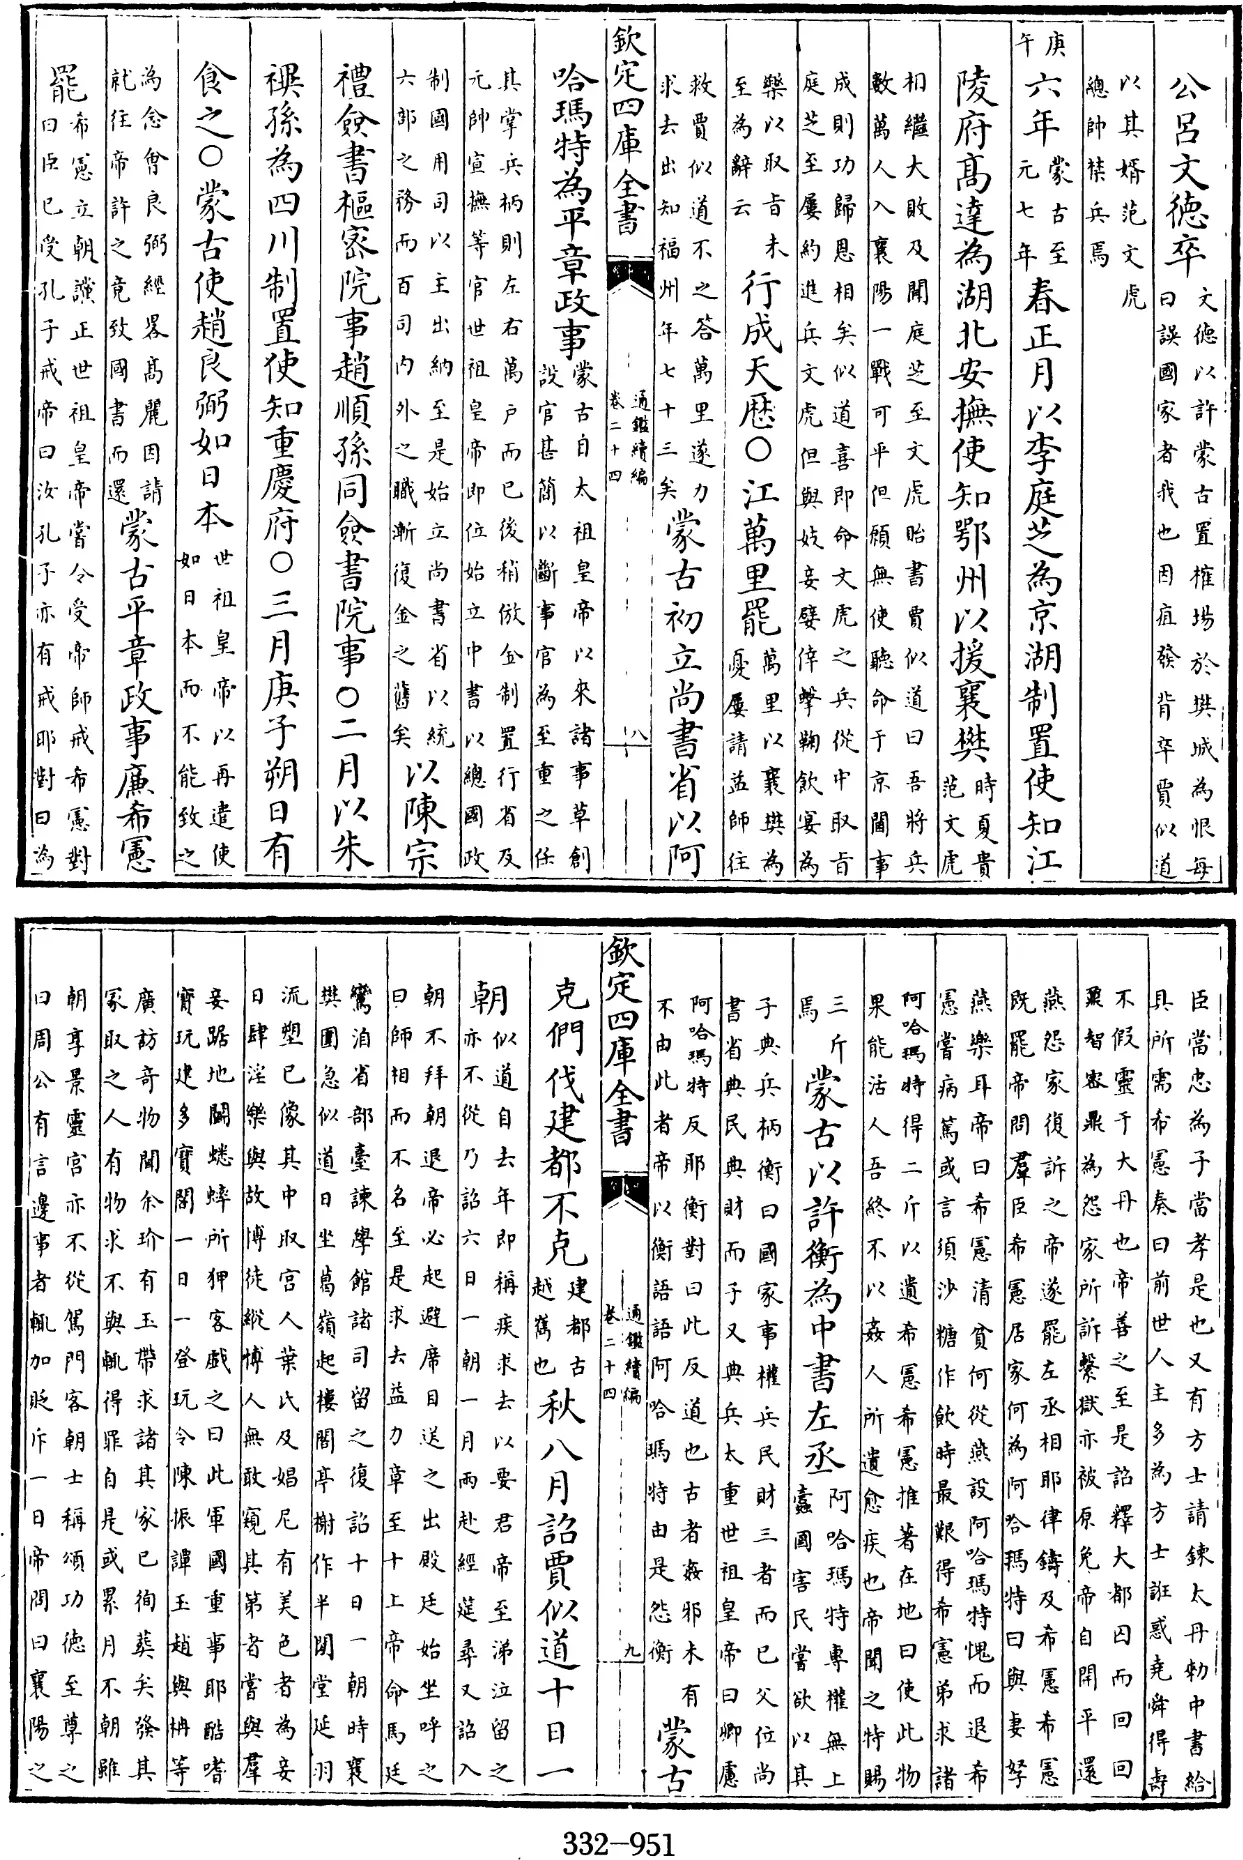 公呂文德卒
文德以許蒙古置榷場於樊城為恨每
曰誤國家者我也因疽發背卒賈似道
以其婿范文虎
總帥禁兵焉
庚午
六年
蒙古至
元七年
春正月以李庭芝為京湖制置使知江
陵府高達為湖北安撫使知鄂州以援襄樊
時夏貴
范文虎
相繼大敗及聞庭芝至文虎貽書賈似道曰吾將兵
數萬人入襄陽一戰可平但願無使聽命于京閫事
成則功歸恩相矣似道喜即命文虎之兵從中取旨
庭芝至屢約進兵文虎但與妓妾嬖倖擊鞠飲宴為
樂以取旨未
至為辭云
行成天厯○江萬里罷
萬里以襄樊為
憂屢請益師往
救賈似道不之答萬里遂力
求去出知福州年七十三矣
蒙古初立尚書省以阿
欽定四庫全書
通鑑續編
卷二十四
八
哈瑪特為平章政事
蒙古自太祖皇帝以來諸事草創
設官甚簡以斷事官為至重之任
其掌兵柄則左右萬户而已後稍倣金制置行省及
元帥宣撫等官世祖皇帝即位始立中書以總國政
制國用司以主出納至是始立尚書省以統
六部之務而百司内外之職漸復金之舊矣
以陳宗
禮僉書樞密院事趙順孫同僉書院事○二月以朱
禩孫為四川制置使知重慶府○三月庚子朔日有
食之○蒙古使趙良弼如日本
世祖皇帝以再遣使
如日本而不能致之
為念會良弼經畧高麗因請
就往帝許之竟致國書而還
蒙古平章政事廉希憲
罷
希憲立朝讜正世祖皇帝嘗令受帝師戒希憲對
曰臣已受孔子戒帝曰汝孔子亦有戒耶對曰為
臣當忠為子當孝是也又有方士請鍊太丹勅中書給
具所需希憲奏曰前世人主多為方士誑惑堯舜得壽
不假靈于大丹也帝善之至是詔釋大都囚而回回
禀智密鼎為怨家所訴繫獄亦被原免帝自開平還
燕怨家復訴之帝遂罷左丞相耶律鑄及希憲希憲
既罷帝問羣臣希憲居家何為阿哈瑪特曰與妻孥
燕樂耳帝曰希憲清貧何從燕設阿哈瑪特愧而退希
憲嘗病篤或言須沙糖作飲時最艱得希憲弟求諸
阿哈瑪特得二斤以遺希憲希憲推著在地曰使此物
果能活人吾終不以姦人所遺愈疾也帝聞之特賜
三斤
焉
蒙古以許衡為中書左丞
阿哈瑪特專權無上
蠧國害民嘗欲以其
子典兵柄衡曰國家事權兵民財三者而已父位尚
書省典民典財而子又典兵太重世祖皇帝曰卿慮
阿哈瑪特反耶衡對曰此反道也古者姦邪未有
不由此者帝以衡語語阿哈瑪特由是怨衡
蒙古
欽定四庫全書
通鑑續編
卷二十四
九
克們伐建都不克
建都古
越嶲也
秋八月詔賈似道十日一
朝
似道自去年即稱疾求去以要君帝至涕泣留之
亦不從乃詔六日一朝一月兩赴經筵尋又詔入
朝不拜朝退帝必起避席目送之出殿廷始坐呼之
曰師相而不名至是求去益力章至十上帝命馬廷
鸞洎省部臺諫學館諸司留之復詔十日一朝時襄
樊圍急似道日坐葛嶺起樓閣亭榭作半閒堂延羽
流塑已像其中取宮人葉氏及娼尼有美色者為妾
日肆淫樂與故博徒縱博人無敢窺其第者嘗與羣
妾踞地鬭蟋蟀所狎客戲之曰此軍國重事耶酷嗜
寶玩建多寶閣一日一登玩令陳振譚玉趙與栴等
廣訪奇物聞余玠有玉帶求諸其家已徇葬矣發其
冢取之人有物求不與輒得罪自是或累月不朝雖
朝享景靈宮亦不從駕門客朝士稱頌功德至尊之
曰周公有言邊事者輒加貶斥一日帝問曰襄陽之
332-951